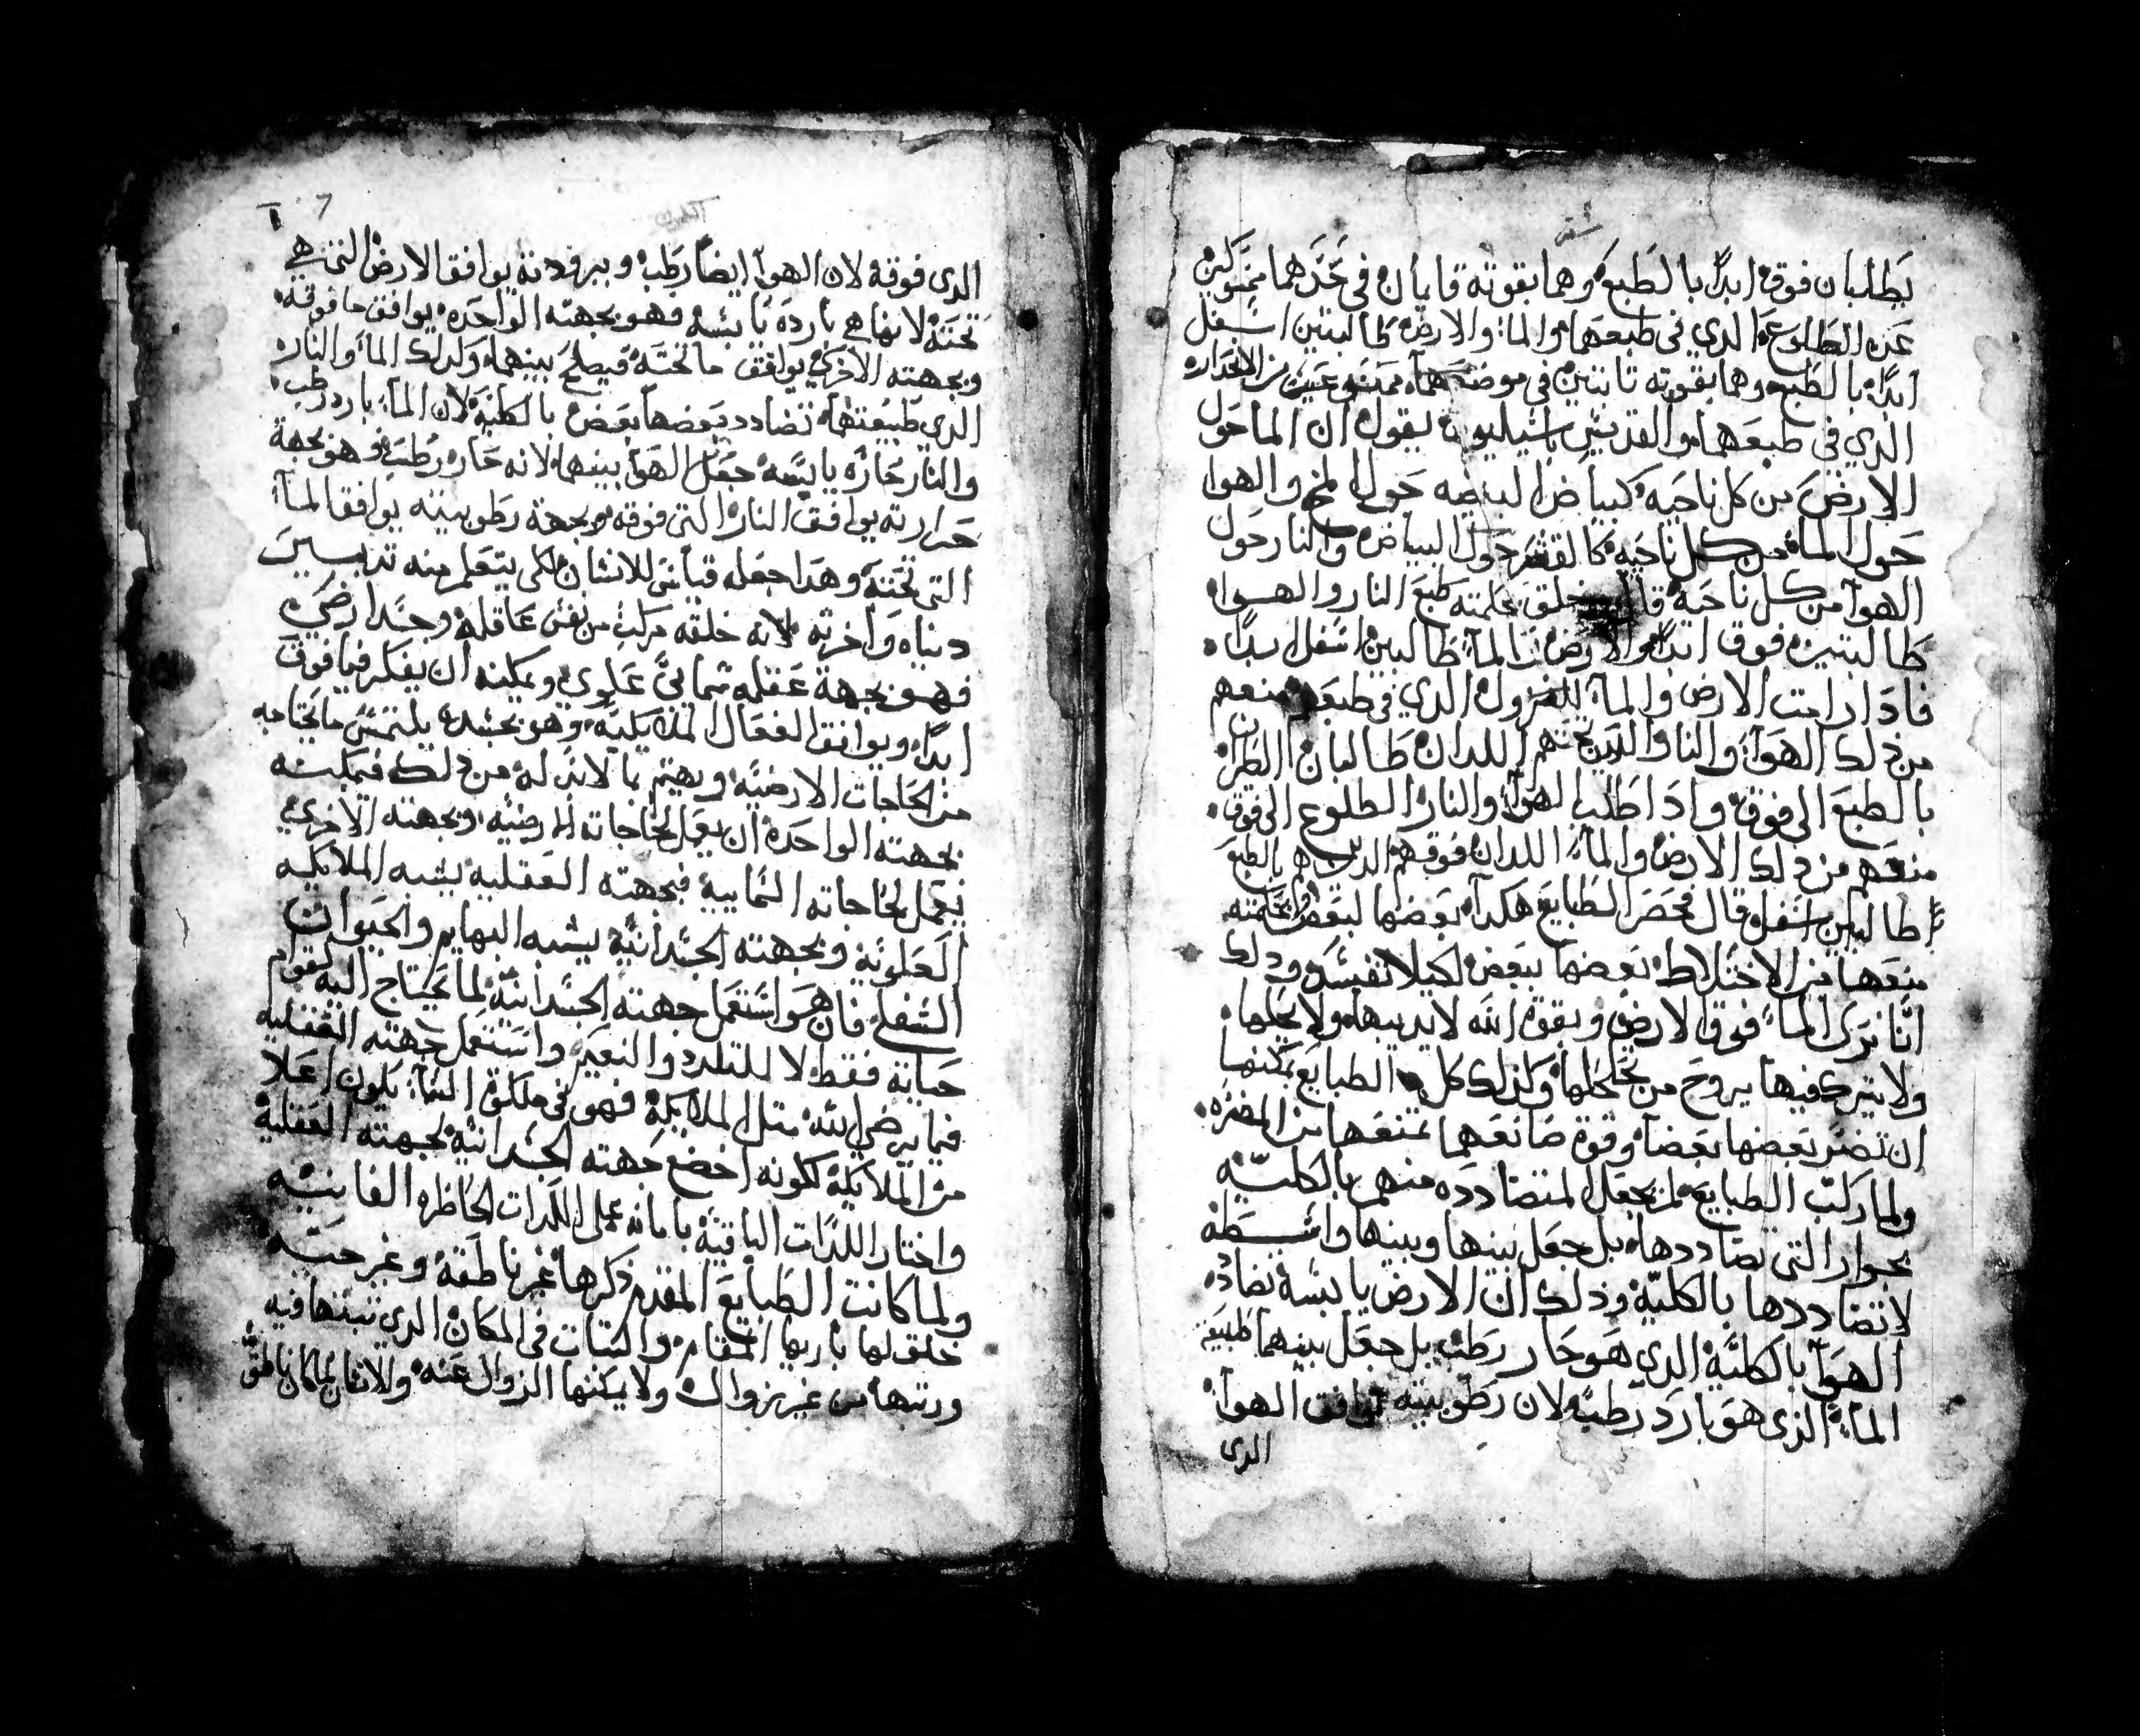 يطلبان فوق ابدًا بالطبع وهما بقوته قايمان في حدهما
عن الطلوع الذي في طبعهما والماء والارض طالبتين اسفل
ابدًا بالطبع وهما بقوته ثابتين في موضعهما من الانحدار
الذي في طبعهما والقديس باسيليوس يقول ان الما حول
الارض من كل ناحيه كبياض البيضه حول المح والهوا
حول الماء من كل ناحيه كالقشر حول البياض والنار حول
الهوآ من كل ناحية قال خلق بحكمته طبع النار والهوا
طالبتين فوق ابدًا والارض والمآ طالبين اسفل ابدًا
فاذا رامت الارض والمآ النزول الذي في طبعهم منعهم
من ذلك الهوآ والنار الذين تحتهم اللذان طالبان الطيران
بالطبع الى فوق واذا طلب الهوآ والنار الطلوع الى فوق
منعهم من ذلك الارض والمآ اللذان فوقهم الذين هم بالطبع
طالبين اسفل قال فحصر الطبايع هكذا بعضها لبعض وبحكمته
منعها من الاختلاط بعضها ببعض لكيلا تفسد وذلك
انّا نرى المآ فوق الارض وبقوة الله لا يذيبها ولا يحلها
ولا يترك فيها يروح من تخلخلها وكذلك كل الطبايع يمكنها
ان تضر بعضها بعضا وقوة صانعها تمنعها من المضره
ولما ركب الطبايع لم يجعل المتضادده منهم بالكليّة
بجوار التي تضاددها بل جعل بينها وبينها واسطة
لا تضاددها بالكليّة وذلك ان الارض يابسة تضادد
الهوآ بالكليّة الذي هو حار رطب بل جعل بينهما طبيعة
المآ الذي هو بارد رطب لان رطوبيته توافق الهوآ
الذي
الذي فوقه لان الهوآ ايضًا رطب وببرودته يوافق الارض التي هي
تحته لانها هي بارده يابسه فهو بجهته الواحده يوافق ما فوقه
وبجهته الاخرى يوافق ما تحته فيصلح بينهما وكذلك المآ والنار
الذي طبيعتهما تضادد بعضها بعض بالكلية لان المآ بارد رطب
والنار حارّه يابسه جعل الهوآ بينهما لانه حار رطب فهو بجهة
حرارته يوافق النار التي فوقه وبجهة رطوبيته يوافق المآ
التي تحته وهذا جعله قياس للانسان لكي يتعلم منه تدبير
دنياه واخرته لانه خلقه مركب من نفس عاقله وجسد ارضي
فهو بجهة عقله سمايي علوي ويمكنه ان يفكر فيما فوق
ابدًا ويوافق افعال الملايكة وهو بجسده يلتمس ما يحتاجه
من الحاجات الارضيّة ويهتم بما لابد له من ذلك فيمكنه
بجهته الواحده ان يعمل لحاجاته الارضيّه وبجهته الاخرى
يعمل لحاجاته السماييه فبجهته العقليه يشبه الملايكه
العلويّة وبجهته الجسدانيّة يشبه البهايم والحيوان
السفلي فان هو استعمل جهته الجسدانيّة لما يحتاج اليه لقوام
حياته فقط لا للتلذذ والنعيم واستعمل جهته العقليه
فيما يرضي الله مثل الملايكة فهو في ملكوة السمآ يكون اعلا
من الملايكة لكونه اخضع جهته الجسدانيّة لجهته العقلية
واختار اللذات الباقية بامانه على اللذات الحاظره الفانيه
ولما كانت الطبايع المقدم ذكرها غير ناطقة وغير حيّة
خلق لها باريها المقام والثبات في المكان الذي ثبتها فيه
ورتبها من غير زوال ولا يمكنها الزوال عنه والانسان لما كان ناطق